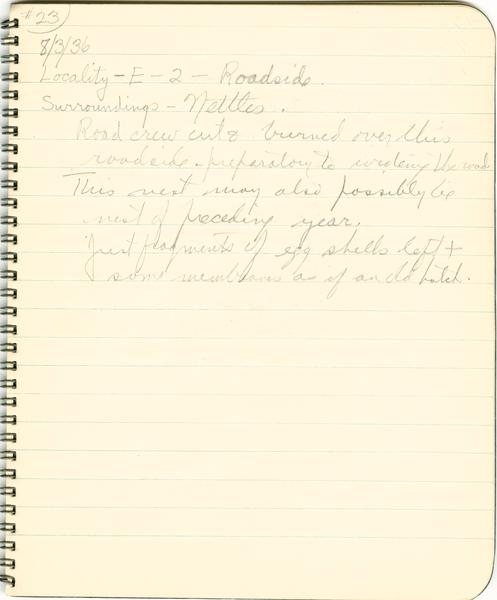 #23
8/3/36
Locality - E - 2 - Roadside.
Surroundings - Nettles.
Road crew cut & burned over this
roadside preparatory to widening the road
This nest may also possibly be
nest of preceding year.
Just fragments of egg shells left +
some membranes as if an old hatch.